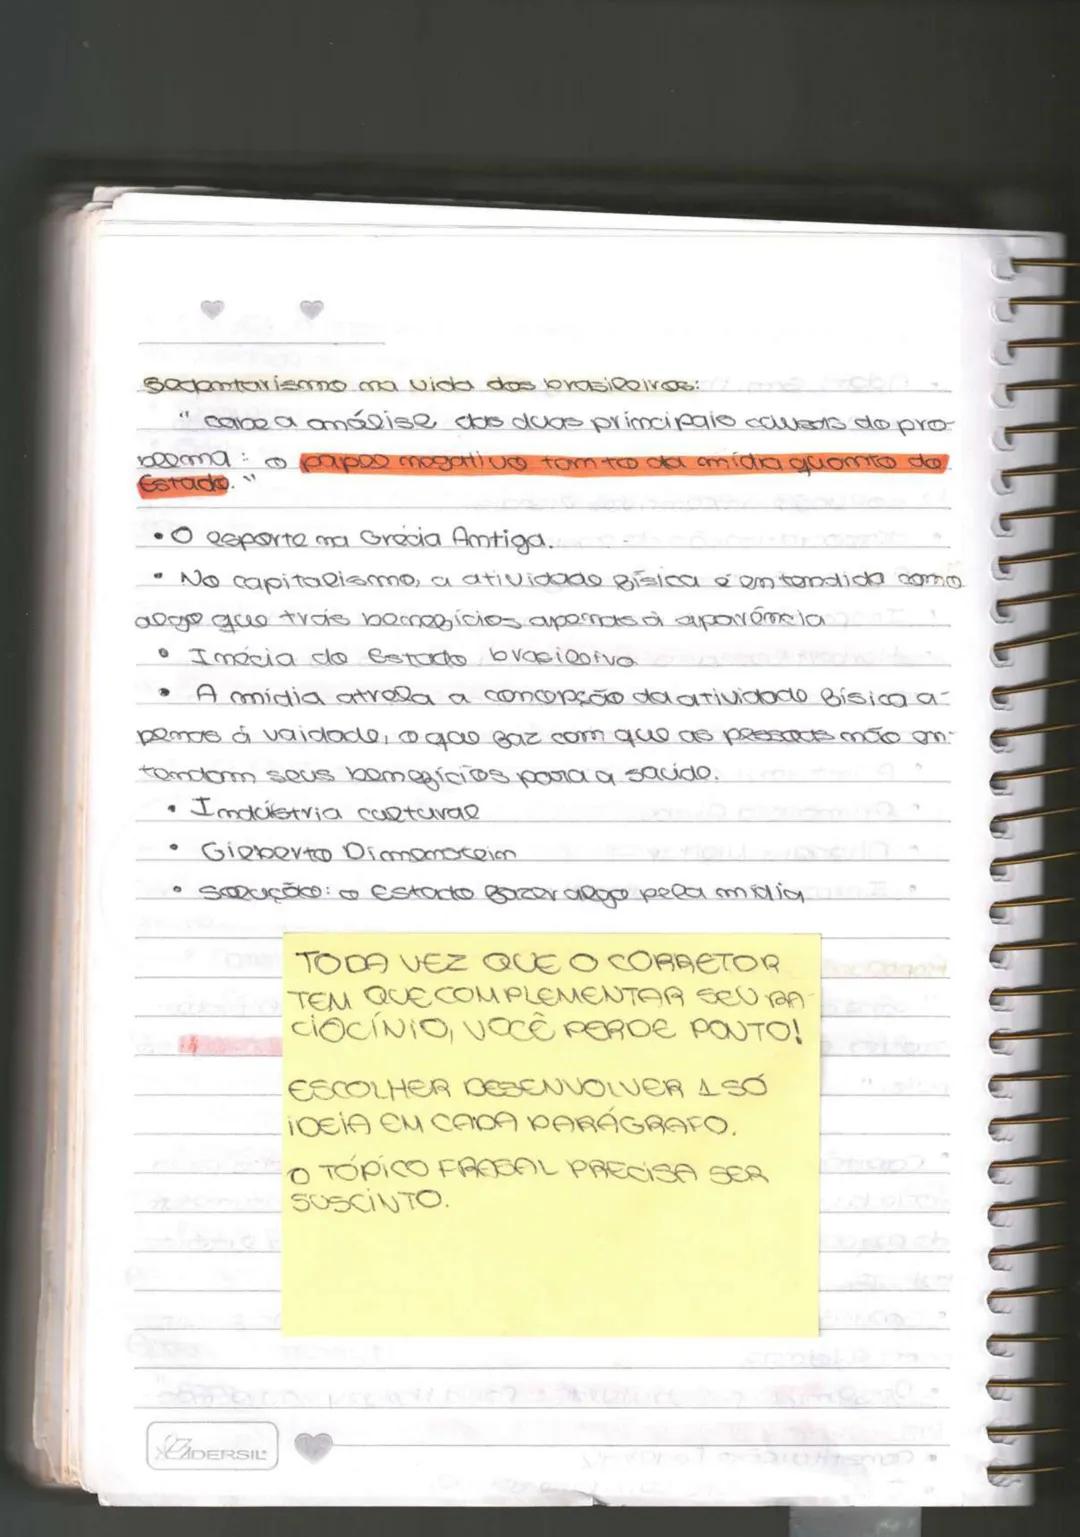 Sedentarismo na vida dos brasileiros:
" cabe a análise das duas principais causas do pro-
blema: o papel negativo tanto da mídia quanto do
Estado."
• O esporte na Grécia Antiga.
• No capitalismo, a atividade física é entendida como
algo que trás benefícios apenas à aparência
• Inércia do Estado brasileiro
• A mídia atrela a concepção da atividade física a-
penas à vaidade, o que faz com que as pessoas não en-
tendam seus benefícios para a saúde.
• Indústria cultural
• Gilberto Dimenstein
• Solução: o Estado fazer algo pela mídia
TODA VEZ QUE O CORRETOR
TEM QUE COMPLEMENTAR SEU RA-
CIOCÍNIO, VOCÊ PERDE PONTO!
ESCOLHER DESENVOLVER 1 SÓ
IDEIA EM CADA PARÁGRAFO.
O TÓPICO FRASAL PRECISA SER
SUSCINTO.
ADERSIL